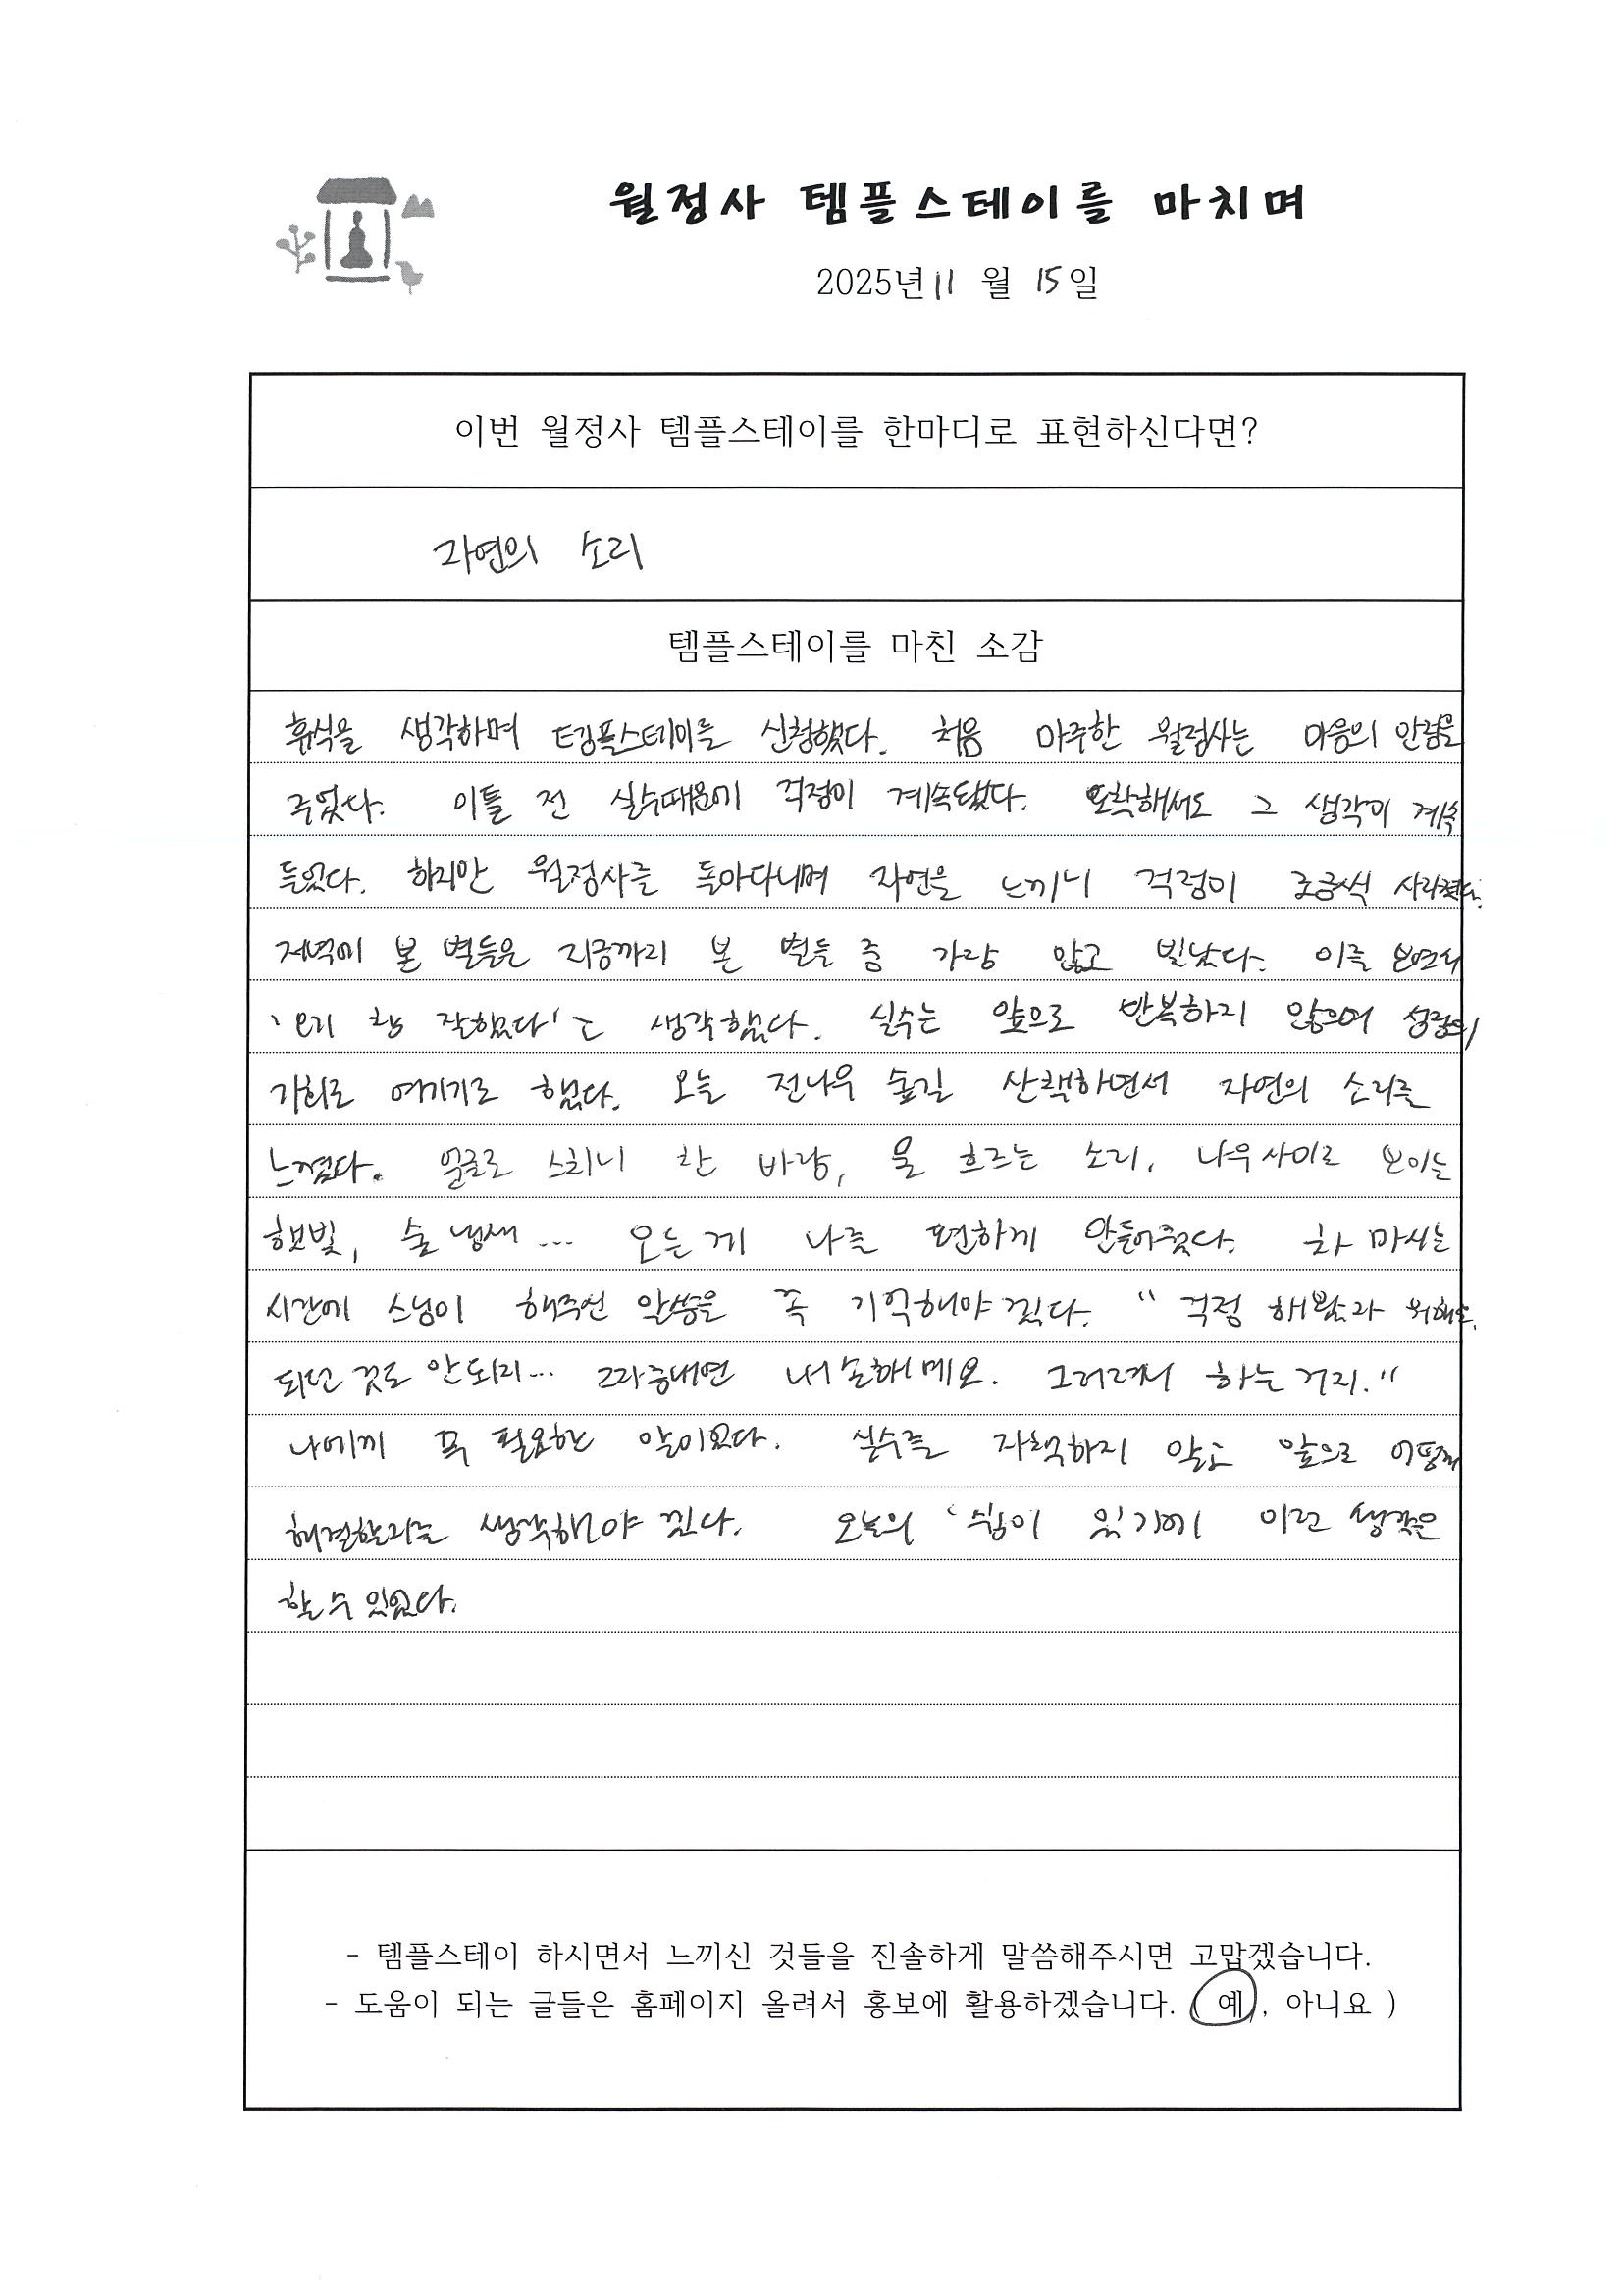 월정사 템플스테이를 마치며
2025년 11 월 15일
이번 월정사 템플스테이를 한마디로 표현하신다면?
자연의 소리
템플스테이를 마친 소감
휴식을 생각하며 템플스테이를 신청했다. 처음 마주한 월정사는 마음의 안정을
주었다. 이틀 전 실수때문에 걱정이 계속됐다. 도착해서도 그 생각이 계속
들었다. 하지만 월정사를 돌아다니며 자연을 느끼니 걱정이 조금씩 사라졌다.
저녁에 본 별들은 지금까지 본 별들 중 가장 많고 빛났다. 이를 보면서
'오기 참 잘했다'는 생각했다. 실수는 앞으로 반복하지 않으며 성장의
기회로 여기기로 했다. 오늘 전나무 숲길 산책하면서 자연의 소리를
느꼈다. 얼굴로 스치니 찬 바람, 물 흐르는 소리, 나무사이로 보이는
햇빛, 숲 냄새... 모든게 나를 편하게 만들어주었다. 차 마시는
시간에 스님이 해주신 말씀을 꼭 기억해야 겠다. " 걱정 해봤자 뭐해요.
되던 것도 안되지... 짜증내면 내 손해에요. 그러려니 하는 거지."
나에게 꼭 필요한 말이었다. 실수를 자책하지 말고 앞으로 어떻게
해결할지를 생각해야 겠다. 오늘의 '쉼이 있기에 이런 생각은
할 수 있었다.
- 템플스테이 하시면서 느끼신 것들을 진솔하게 말씀해주시면 고맙겠습니다.
- 도움이 되는 글들은 홈페이지 올려서 홍보에 활용하겠습니다. ( 예 , 아니요 )